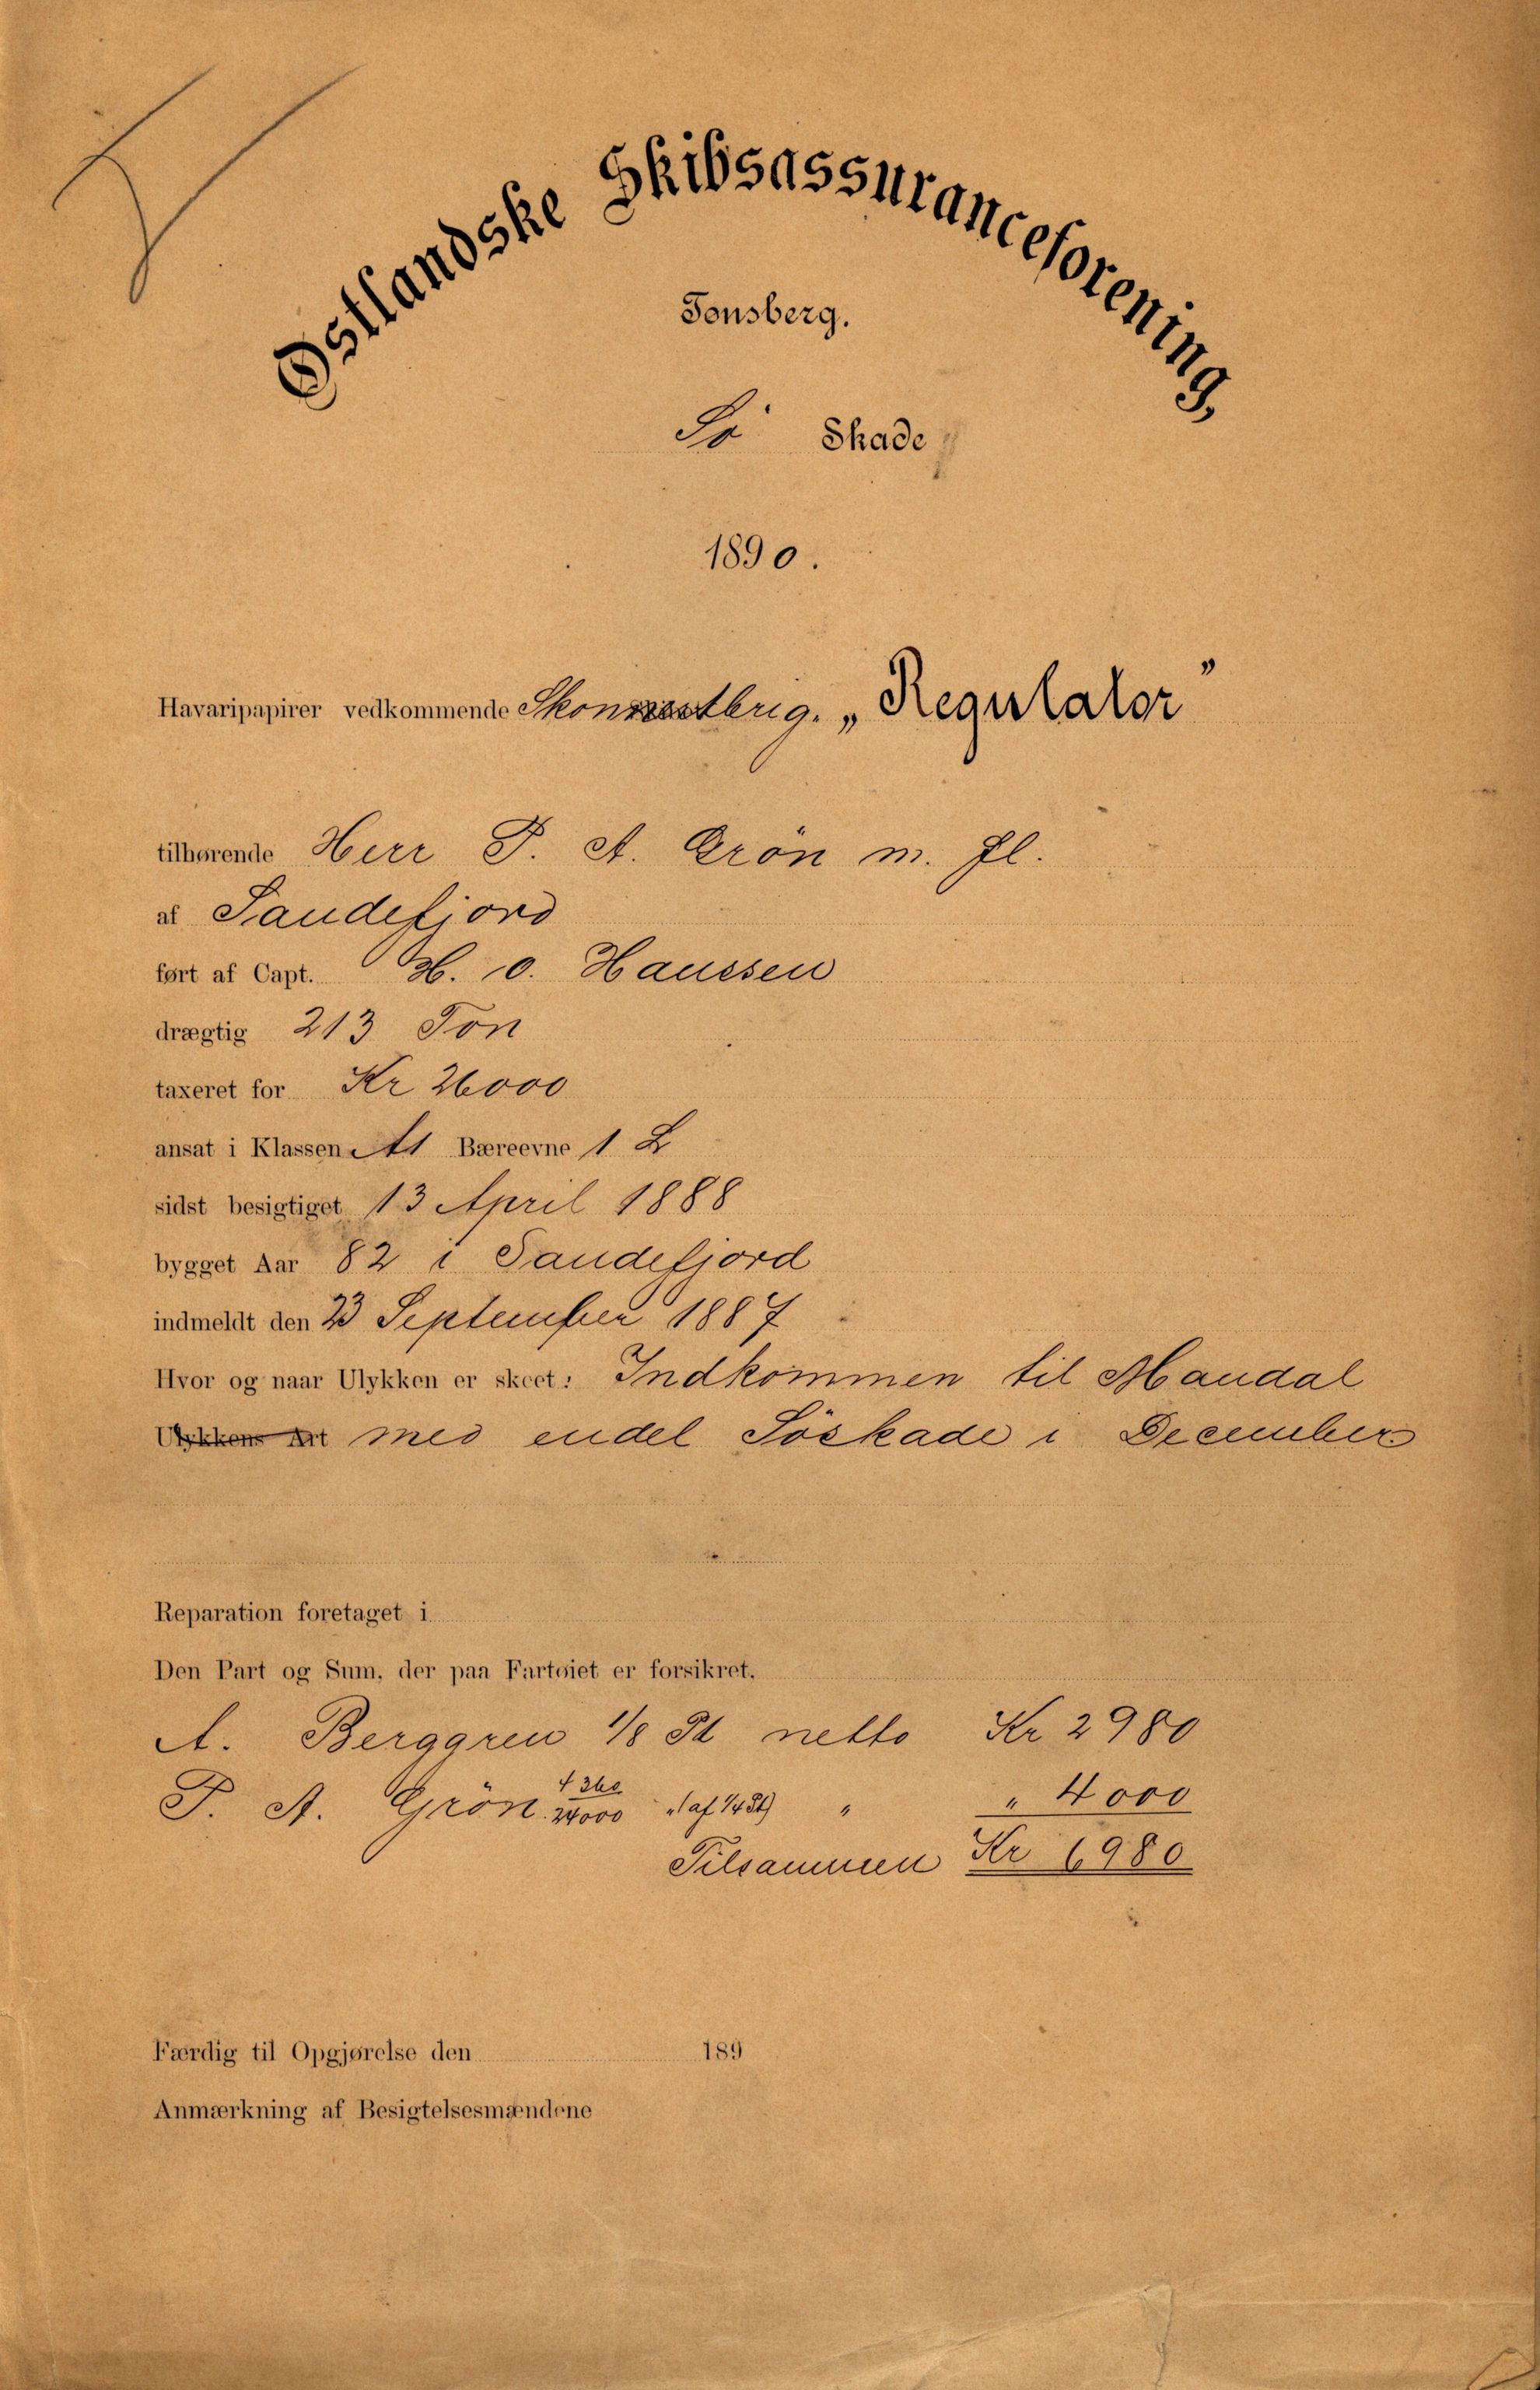 Østlandske Skibsassuranceforening,
Tønsberg.
Sö Skade
1890.
Havaripapirer vedkommende Skonnertbrig. „Regulator”
tilhørende Herr P. A. Grön m. fl.
af Sandefjord
ført af Capt. H. O. Hanssen
drægtig 213 Ton
taxeret for Kr 26000
ansat i Klassen A1 Bæreevne 1 L
sidst besigtiget 13 April 1888
bygget Aar 82 i Sandefjord
indmeldt den 23 September 1887
Hvor og naar Ulykken er skeet: Indkommen til Mandal
Ulykkens Art med endel Söskade i December
Reparation foretaget i
Den Part og Sum, der paa Fartøiet er forsikret,
A. Berggren 1/8 Pt netto Kr 2980
P. A. Grön 4360/24000 „ (af 1/4 Pt) „ „ 4000
Tilsammen Kr 6980
Færdig til Opgjørelse den 189
Anmærkning af Besigtelsesmændene